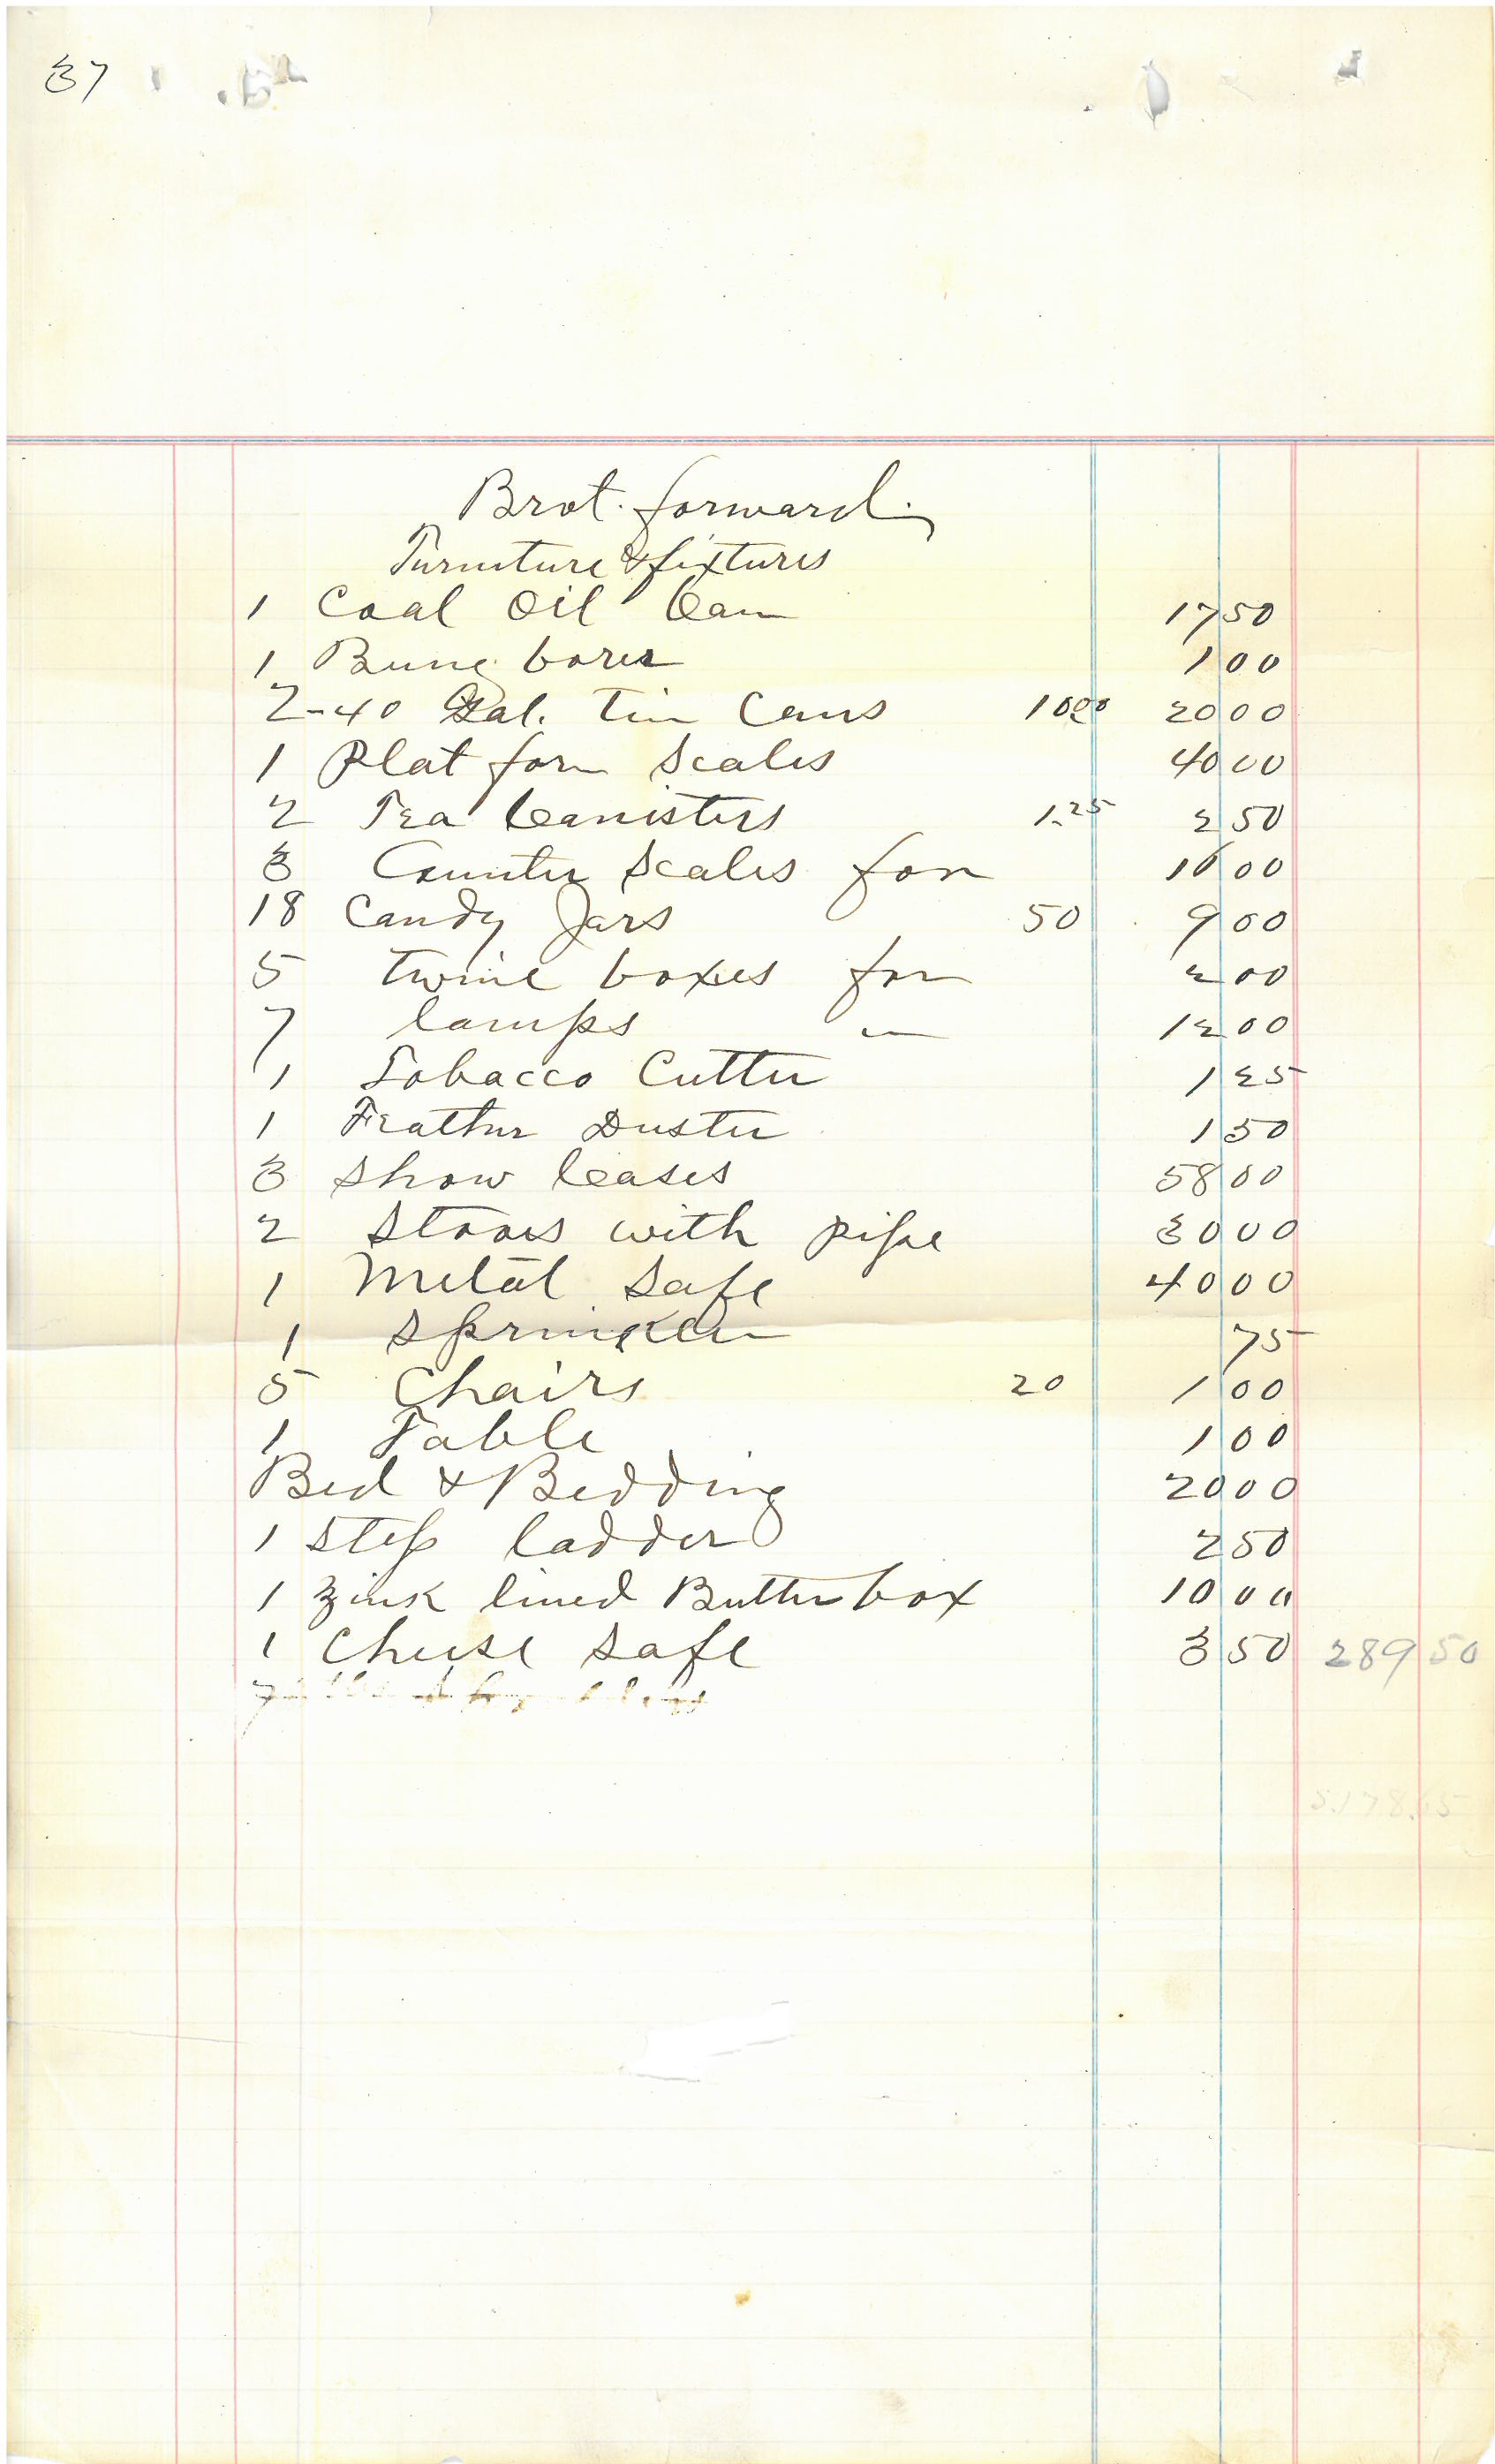 37
Brot. forward
Furniture & fixtures
1 Coal Oil Can 17 50
1 Bung borer 1 00
2-40 Gal. Tin Cans 10.00 20 00
1 Plat form Scales 40 00
2 Tea Canisters 1.25 2 50
3 Counter Scales for 16 00
18 Candy Jars 50 9 00
5 twine boxes for 2 00
7 lamps " 12 00
1 Tobacco Cutter 1 25
1 Feather Duster 1 50
3 Show Cases 58 00
2 Stoves with pipe 30 00
1 Metal Safe 40 00
1 Sprinkler 75
5 Chairs 20 1 00
1 Table 1 00
Bed & Bedding 20 00
1 Step ladder 2 50
1 Zink lined Butter box 10 00
1 Cheese Safe 3 50 289 50